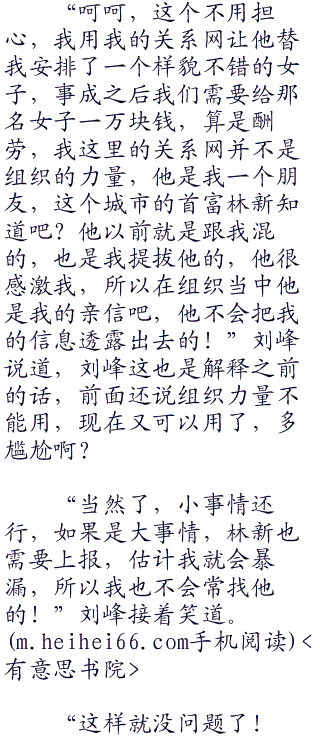 “呵呵，这个不用担
心，我用我的关系网让他替
我安排了一个样貌不错的女
子，事成之后我们需要给那
名女子一万块钱，算是酬
劳，我这里的关系网并不是
组织的力量，他是我一个朋
友，这个城市的首富林新知
道吧？他以前就是跟我混
的，也是我提拔他的，他很
感激我，所以在组织当中他
是我的亲信吧，他不会把我
的信息透露出去的！”刘峰
说道，刘峰这也是解释之前
的话，前面还说组织力量不
能用，现在又可以用了，多
尴尬啊？
“当然了，小事情还
行，如果是大事情，林新也
需要上报，估计我就会暴
漏，所以我也不会常找他
的！”刘峰接着笑道。
(m.heihei66.com手机阅读)<
有意思书院>
“这样就没问题了！